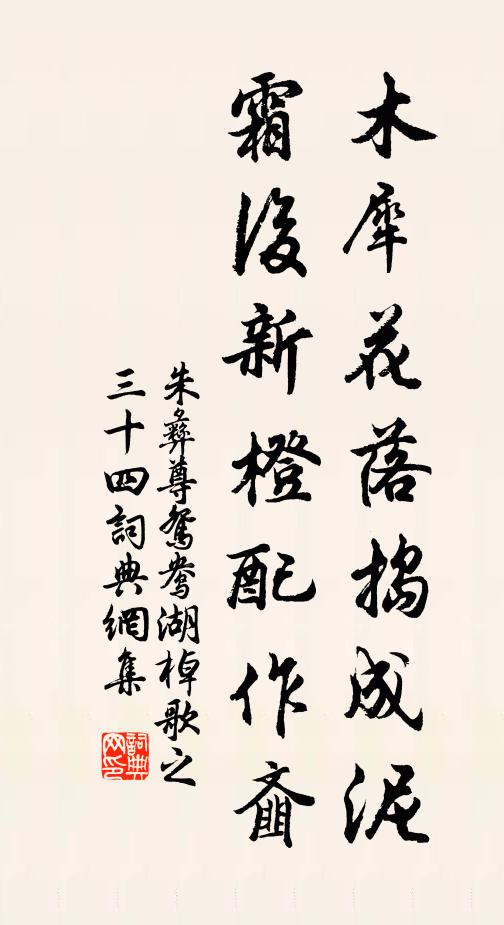 木犀花落搗成泥
霜後新橙配作齑
朱彝尊鴛鴦湖棹歌之
三十四詞典網集
詞典
网印